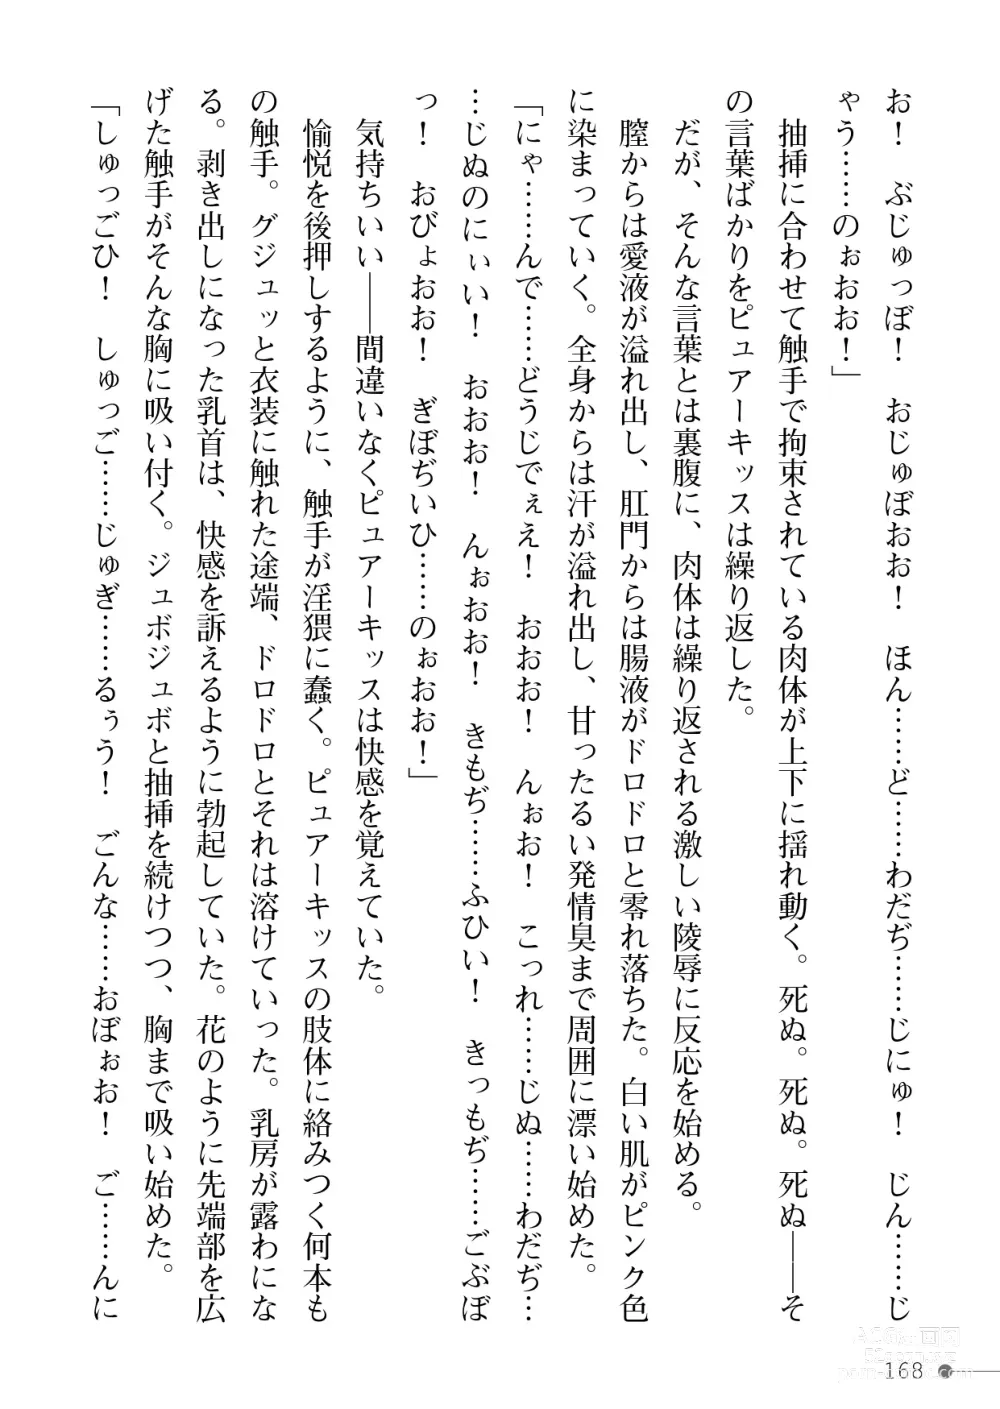 お！　ぶじゅっぼ！　おじゅぼおお！　ほん……ど……わだぢ……じにゅ！　じん……じ
ゃう……のぉおお！」
　抽挿に合わせて触手で拘束されている肉体が上下に揺れ動く。死ぬ。死ぬ。死ぬ――そ
の言葉ばかりをピュアーキッスは繰り返した。
　だが、そんな言葉とは裏腹に、肉体は繰り返される激しい陵辱に反応を始める。
　膣からは愛液が溢れ出し、肛門からは腸液がドロドロと零れ落ちた。白い肌がピンク色
に染まっていく。全身からは汗が溢れ出し、甘ったるい発情臭まで周囲に漂い始めた。
「にゃ……んで……どうじでぇえ！　おおお！　んぉお！　こっれ……じぬ……わだぢ…
…じぬのにぃい！　おおお！　んぉおお！　きもぢ……ふひい！　きっもぢ……ごぶぼ
っ！　おびょおお！　ぎぼぢいひ……のぉおお！」
　気持ちいい――間違いなくピュアーキッスは快感を覚えていた。
　愉悦を後押しするように、触手が淫猥に蠢く。ピュアーキッスの肢体に絡みつく何本も
の触手。グジュッと衣装に触れた途端、ドロドロとそれは溶けていった。乳房が露わにな
る。剥き出しになった乳首は、快感を訴えるように勃起していた。花のように先端部を広
げた触手がそんな胸に吸い付く。ジュボジュボと抽挿を続けつつ、胸まで吸い始めた。
「しゅっごひ！　しゅっご……じゅぎ……るぅう！　ごんな……おぼぉお！　ご……んに
168